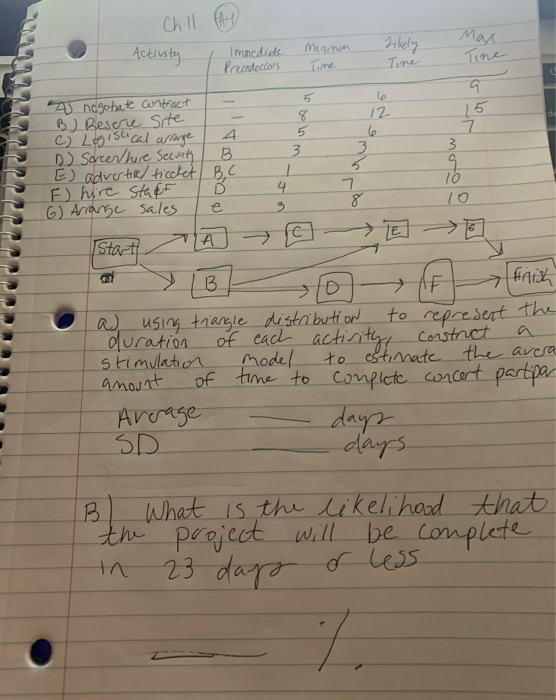 Ch 11
Activity Immediate Predecctors Minimum Time Likely Time Max Time
A) negotiate contract — 5 6 9
B) Reserve Site — 8 12 15
C) Logistical arrange A 5 6 7
D) Screen/hire Security B 3 3 3
E) advertise/ ticket B,C 1 5 9
F) hire Staff D 4 7 10
G) Arrange Sales e 3 8 10
Start A C E G
B D F finish
a) using triangle distribution to represent the
duration of each activity, construct a
stimulation model to estimate the avera
amount of time to complete concert partpar
Average ____ days
SD ____ days
B) What is the likelihood that
the project will be complete
in 23 days or less
____ %.